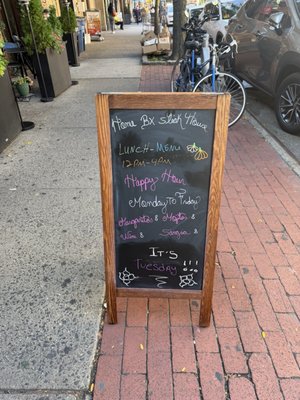 Home BX Steak House
LUNCH-MENU
12PM-4PM
Happy Hour
Monday To Friday
Margaritas 8 Mojitos 8
Wine 8 Sangria 8
IT'S
TUESDAY !!!